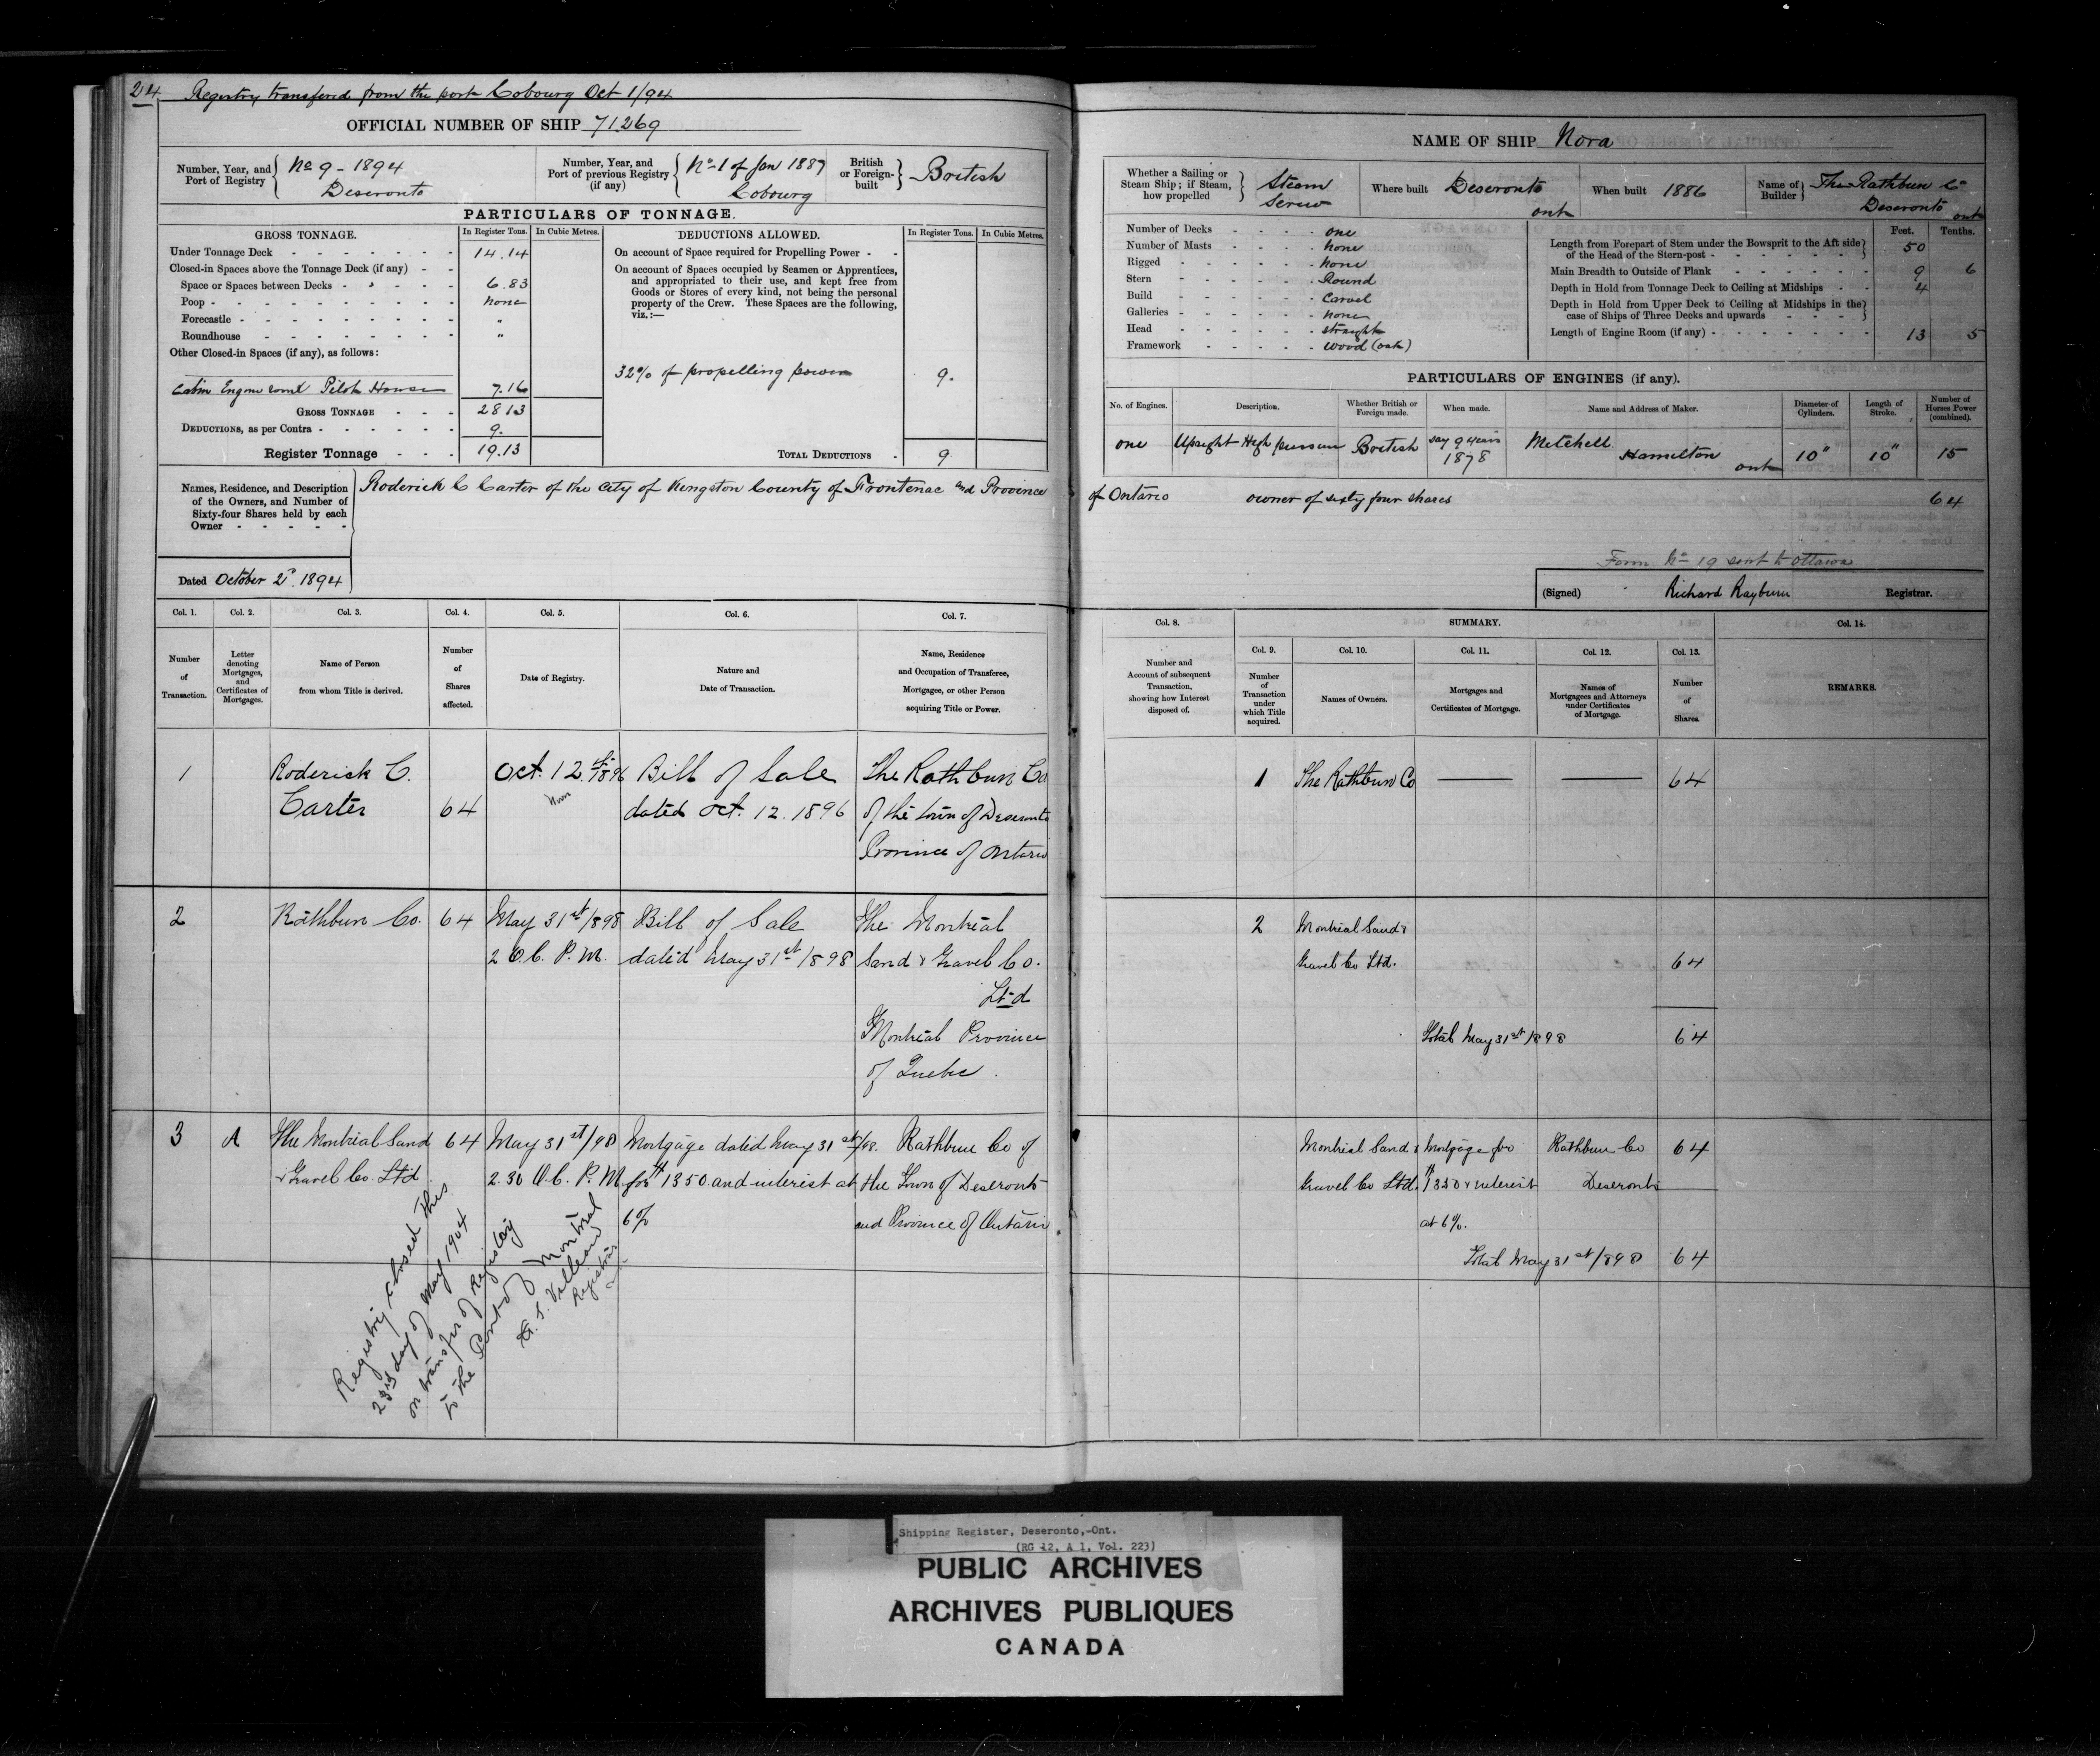 24 Registry transfered from the port Cobourg Oct 1/94
OFFICIAL NUMBER OF SHIP 71269
Number, Year, and Port of Registry { No 9 - 1894 Deseronto
Number, Year, and Port of previous Registry (if any) { No 1 of Jan 1887 Cobourg
British or Foreign-built } British
PARTICULARS OF TONNAGE.
GROSS TONNAGE. In Register Tons. In Cubic Metres.
Under Tonnage Deck 14.14
Closed-in Spaces above the Tonnage Deck (if any)
Space or Spaces between Decks 6.83
Poop none
Forecastle "
Roundhouse "
Other Closed-in Spaces (if any), as follows:
Cabin Engine roome Pilot House 7.16
GROSS TONNAGE 28 13
DEDUCTIONS, as per Contra 9.
Register Tonnage 19.13
DEDUCTIONS ALLOWED. In Register Tons. In Cubic Metres.
On account of Space required for Propelling Power
On account of Spaces occupied by Seamen or Apprentices,
and appropriated to their use, and kept free from
Goods or Stores of every kind, not being the personal
property of the Crew. These Spaces are the following,
viz.:—
32% of propelling power 9.
TOTAL DEDUCTIONS 9
Names, Residence, and Description
of the Owners, and Number of
Sixty-four Shares held by each
Owner
Roderick C Carter of the City of Kingston County of Frontenac and Province
Dated October 2d 1894
Col. 1. Col. 2. Col. 3. Col. 4. Col. 5. Col. 6. Col. 7.
Number of Transaction.
Letter denoting Mortgages, and Certificates of Mortgages.
Name of Person from whom Title is derived.
Number of Shares affected.
Date of Registry.
Nature and Date of Transaction.
Name, Residence and Occupation of Transferee, Mortgagee, or other Person acquiring Title or Power.
1 Roderick C. Oct. 12th 1896 Bill of Sale The Rathbun Co
Carter 64 Noon dated Oct. 12. 1896 of the town of Deseronto
Province of Ontario
2 Rathbun Co. 64 May 31st 1898 Bill of Sale The Montreal
2 O.C. P.M. dated May 31st 1898 Sand & Gravel Co.
Ltd
Montreal Province
of Quebec.
3 A The Montreal Sand 64 May 31st/98 Mortgage dated May 31st/98. Rathbun Co of
& Gravel Co. Ltd 2.30 O.C. P.M. for $1350 and interest at the Town of Deseronto
6% and Province of Ontario
Registry closed this
23rd day of May 1904
on transfer of Registry
to the Port of Montreal
Registrar
NAME OF SHIP Nora
Whether a Sailing or Steam Ship; if Steam, how propelled } Steam Screw
Where built Deseronto ont
When built 1886
Name of Builder } The Rathbun Co Deseronto ont
Number of Decks one
Number of Masts none
Rigged none
Stern Round
Build Carvel
Galleries none
Head straight
Framework wood (oak)
Feet. Tenths.
Length from Forepart of Stem under the Bowsprit to the Aft side of the Head of the Stern-post 50
Main Breadth to Outside of Plank 9 6
Depth in Hold from Tonnage Deck to Ceiling at Midships 4
Depth in Hold from Upper Deck to Ceiling at Midships in the case of Ships of Three Decks and upwards
Length of Engine Room (if any) 13 5
PARTICULARS OF ENGINES (if any).
No. of Engines. Description. Whether British or Foreign made. When made. Name and Address of Maker. Diameter of Cylinders. Length of Stroke. Number of Horses Power (combined).
one Upright High pressure British say 9 years 1878 Mitchell Hamilton ont 10" 10" 15
of Ontario owner of sixty four shares 64
Form No 19 sent to Ottawa
(Signed) Richard Rayburn Registrar.
Col. 8. SUMMARY. Col. 14.
Col. 9. Col. 10. Col. 11. Col. 12. Col. 13.
Number and Account of subsequent Transaction, showing how Interest disposed of.
Number of Transaction under which Title acquired.
Names of Owners.
Mortgages and Certificates of Mortgage.
Names of Mortgagees and Attorneys under Certificates of Mortgage.
Number of Shares.
REMARKS.
1 The Rathbun Co 64
2 Montreal Sand &
Gravel Co Ltd. 64
Total May 31st 1898 64
Montreal Sand & Mortgage for Rathbun Co 64
Gravel Co Ltd. $1350 & interest Deseronto
at 6%.
Total May 31st 1898 64
Shipping Register, Deseronto,-Ont.
(RG 12, A 1, Vol. 223)
PUBLIC ARCHIVES
ARCHIVES PUBLIQUES
CANADA